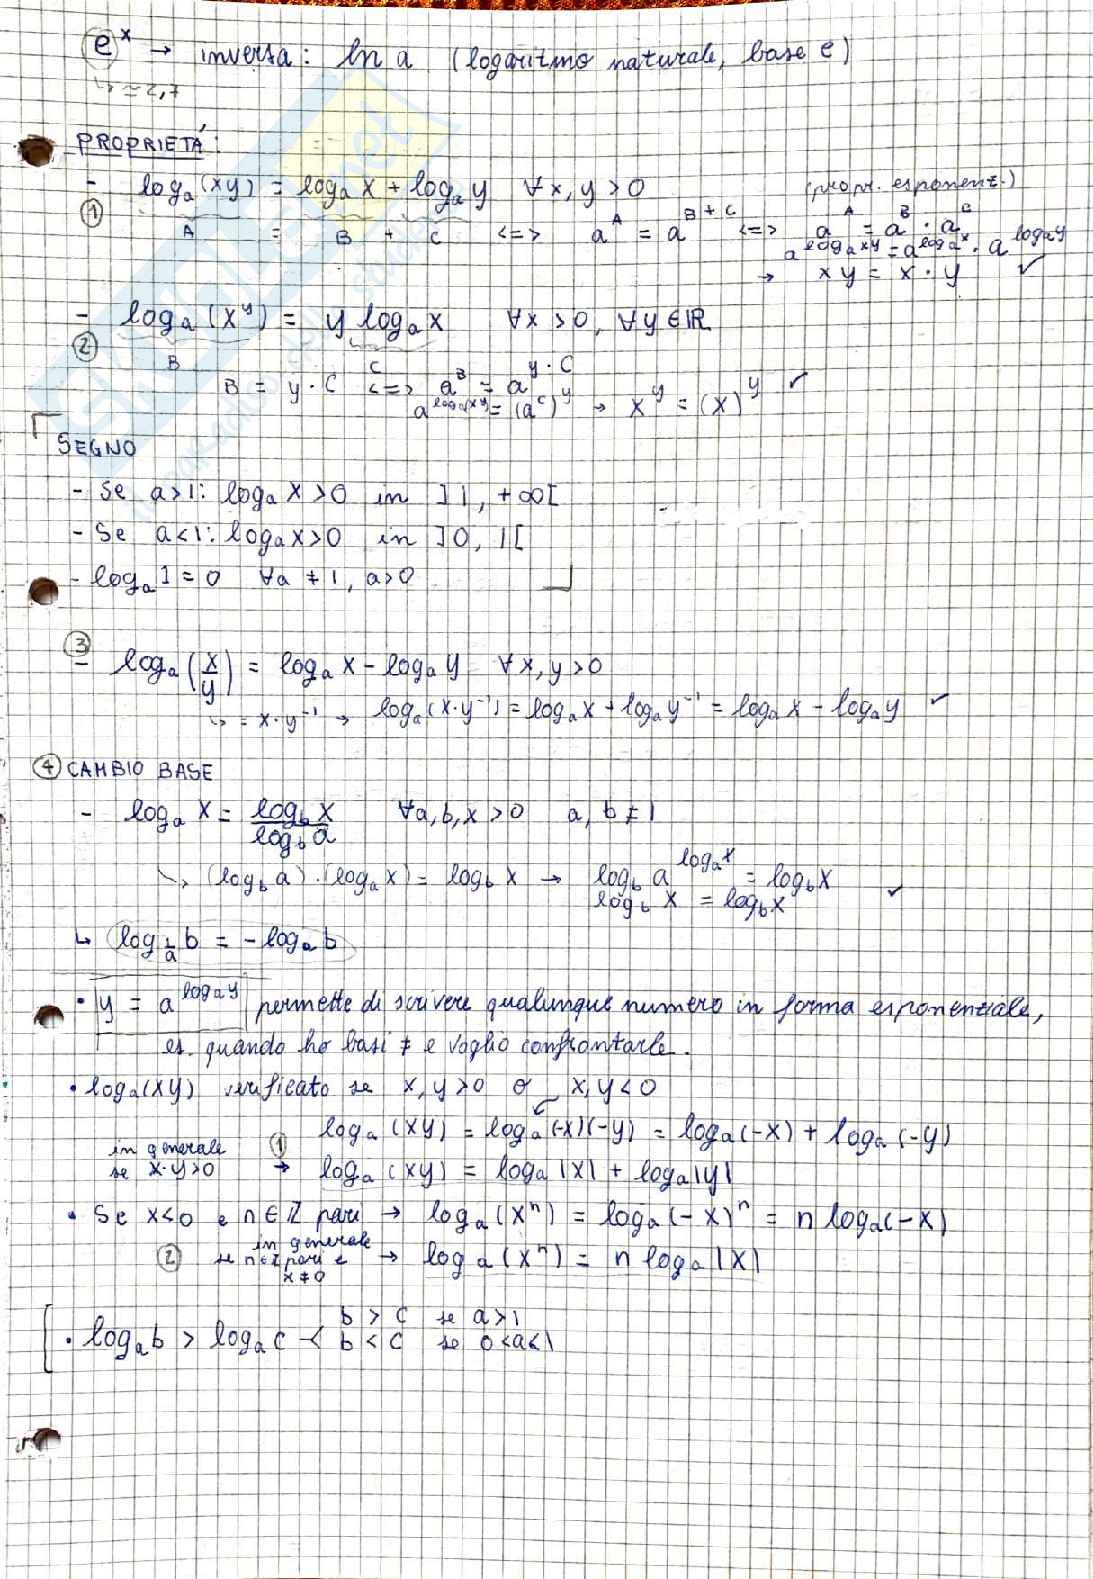 e^x → inversa: ln a (logaritmo naturale, base e)
↳ ≃ 2,7
PROPRIETÁ:
- log_a(xy) = log_a x + log_a y ∀x,y>0 (propr. esponenz.)
① A = B + C <=> a^A = a^{B+C} <=> a^A = a^B · a^C
a^{log_a xy} = a^{log_a x} · a^{log_a y}
→ xy = x · y ✓
- log_a(x^y) = y log_a x ∀x>0, ∀y∈ℝ
② B C
B = y·C <=> a^B = a^{y·C}
a^{log_a(x^y)} = (a^C)^y → x^y = (x)^y ✓
SEGNO
- Se a>1: log_a x>0 in ]1, +∞[
- Se a<1: log_a x>0 in ]0, 1[
- log_a 1 = 0 ∀a ≠ 1, a>0
③
- log_a(x/y) = log_a x - log_a y ∀x,y>0
↳ = x·y^{-1} → log_a(x·y^{-1}) = log_a x + log_a y^{-1} = log_a x - log_a y ✓
④ CAMBIO BASE
- log_a x = log_b x / log_b a ∀a,b,x>0 a,b≠1
↳ (log_b a)·(log_a x) = log_b x → log_b a^{log_a x} = log_b x
log_b x = log_b x ✓
↳ log_{1/a} b = -log_a b
• y = a^{log_a y} permette di scrivere qualunque numero in forma esponenziale,
es. quando ho basi ≠ e voglio confrontarle.
• log_a(xy) verificato se x,y>0 o x,y<0
log_a(xy) = log_a(-x)(-y) = log_a(-x) + log_a(-y)
in generale ①
se x·y>0 → log_a(xy) = log_a|x| + log_a|y|
• Se x<0 e n∈ℤ pari → log_a(x^n) = log_a(-x)^n = n log_a(-x)
in generale
② se n∈ℤ pari e → log_a(x^n) = n log_a|x|
x≠0
b > c se a>1
• log_a b > log_a c < b < c se 0<a<1